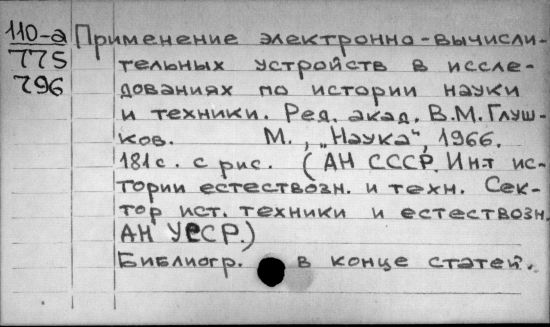 110-а
775
796
Применение электронно-вычисли-
тельных устройств в иссле-
дованиях по истории науки
и техники. Ред. акад. В.М. Глуш-
ков. М., „Наука", 1966.
181 с. с рис. (АН СССР. Ин-т ис-
тории естествозн. и техн. Сек-
тор ист. техники и естествозн.
АН УРСР.)
Библиогр. в конце статей.